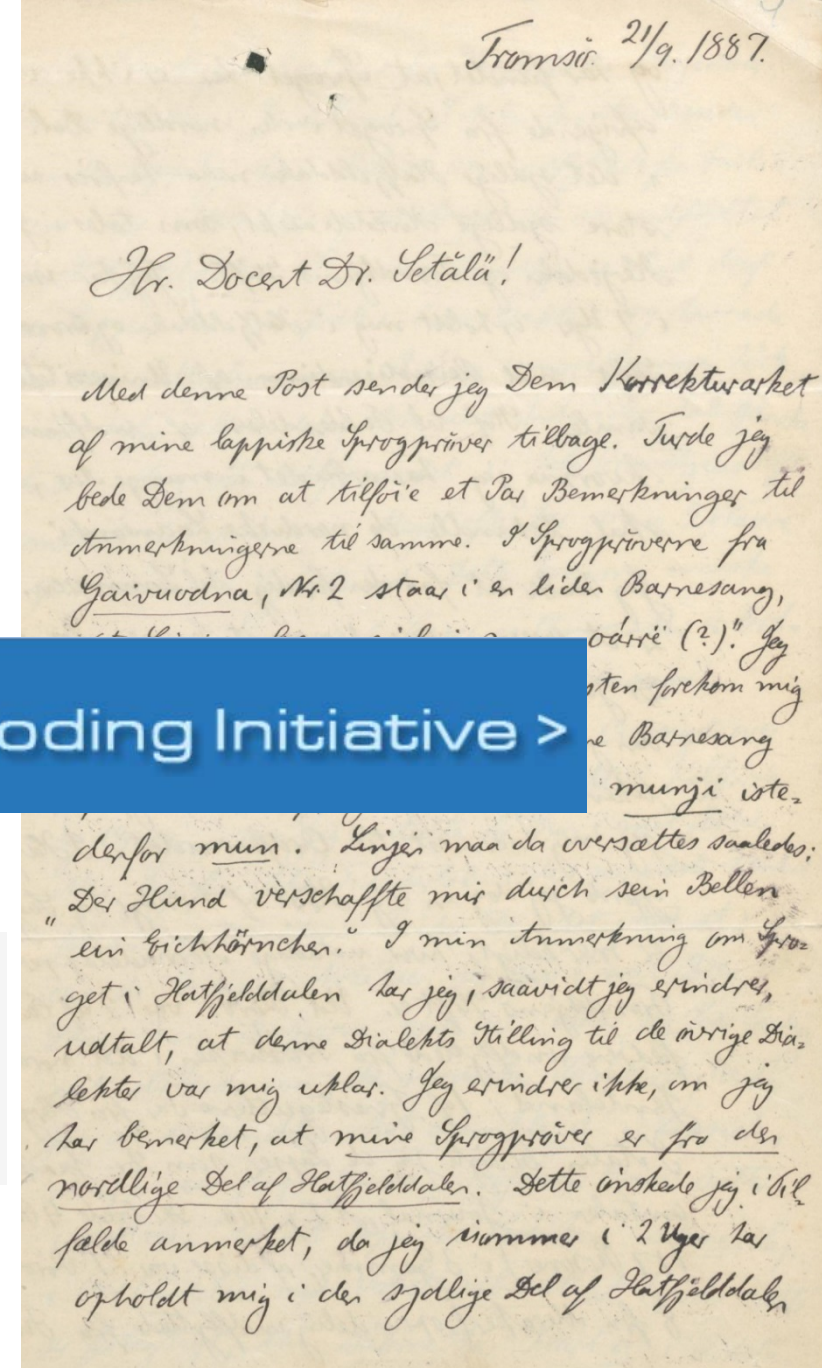 Tromsö. 21/9. 1887.
Hr. Docent Dr. Setälä!
Med denne Post sender jeg Dem Korrekturarket
af mine lappiske Sprogpröver tilbage. Turde jeg
bede Dem om at tilföie et Par Bemerkninger til
Anmerkningerne til samme. I Sprogpröverne fra
Gaivuodna, Nr. 2 staar i en liden Barnesang,
oárrë (?)". Jeg
sten forekom mig
oding Initiative >
ne Barnesang
munji iste=
derfor mun. Linjen maa da oversættes saaledes:
"Der Hund verschaffte mir durch sein Bellen
ein Eichhörnchen." I min Anmerkning om Spro=
get i Hatfjelddalen har jeg, saavidt jeg erindrer,
udtalt, at denne Dialekts Stilling til de övrige Dia=
lekter var mig uklar. Jeg erindrer ikke, om jeg
har bemerket, at mine Sprogpröver er fra den
nordlige Del af Hatfjelddalen. Dette önskede jeg i Til=
fælde anmerket, da jeg isommer i 2 Uger har
opholdt mig i den sydlige Del af Hatfjelddalen